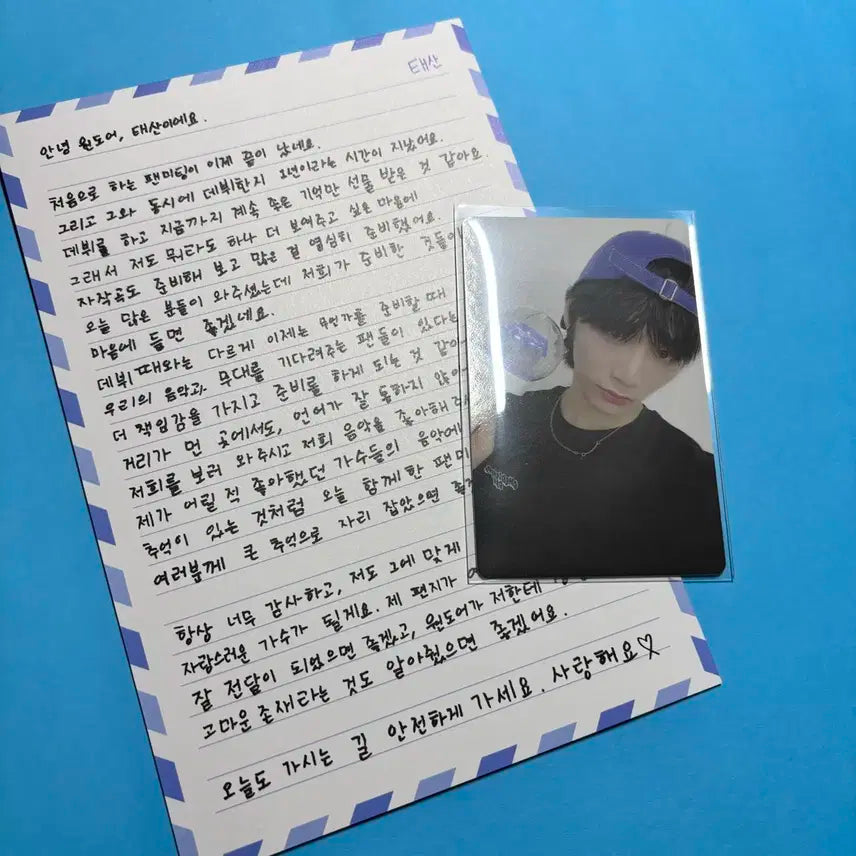 태산
안녕 원도어, 태산이에요.
처음으로 하는 팬미팅이 이제 끝이 났네요.
그리고 그와 동시에 데뷔한지 1년이라는 시간이 지났어요.
데뷔를 하고 지금까지 계속 좋은 기억만 선물 받은 것 같아요.
그래서 저도 뭐라도 하나 더 보여주고 싶은 마음에
자작곡도 준비해 보고 많은 걸 열심히 준비했어요.
오늘 많은 분들이 와주셨는데 저희가 준비한 것들이
마음에 들면 좋겠네요.
데뷔 때와는 다르게 이제는 무언가를 준비할 때
우리의 음악과 무대를 기다려주는 팬들이 있다는
더 책임감을 가지고 준비를 하게 되는 것 같아
거리가 먼 곳에서도, 언어가 잘 통하지 않아
저희를 보러 와주시고 저희 음악을 좋아해
제가 어릴 적 좋아했던 가수들의 음악에
추억이 있는 것처럼 오늘 함께한 팬미
여러분께 큰 추억으로 자리 잡았으면
항상 너무 감사하고, 저도 그에 맞게
자랑스러운 가수가 될게요. 제 편지가
잘 전달이 되었으면 좋겠고, 원도어가 저한테
고마운 존재라는 것도 알아줬으면 좋겠어요.
오늘도 가시는 길 안전하게 가세요. 사랑해요♡